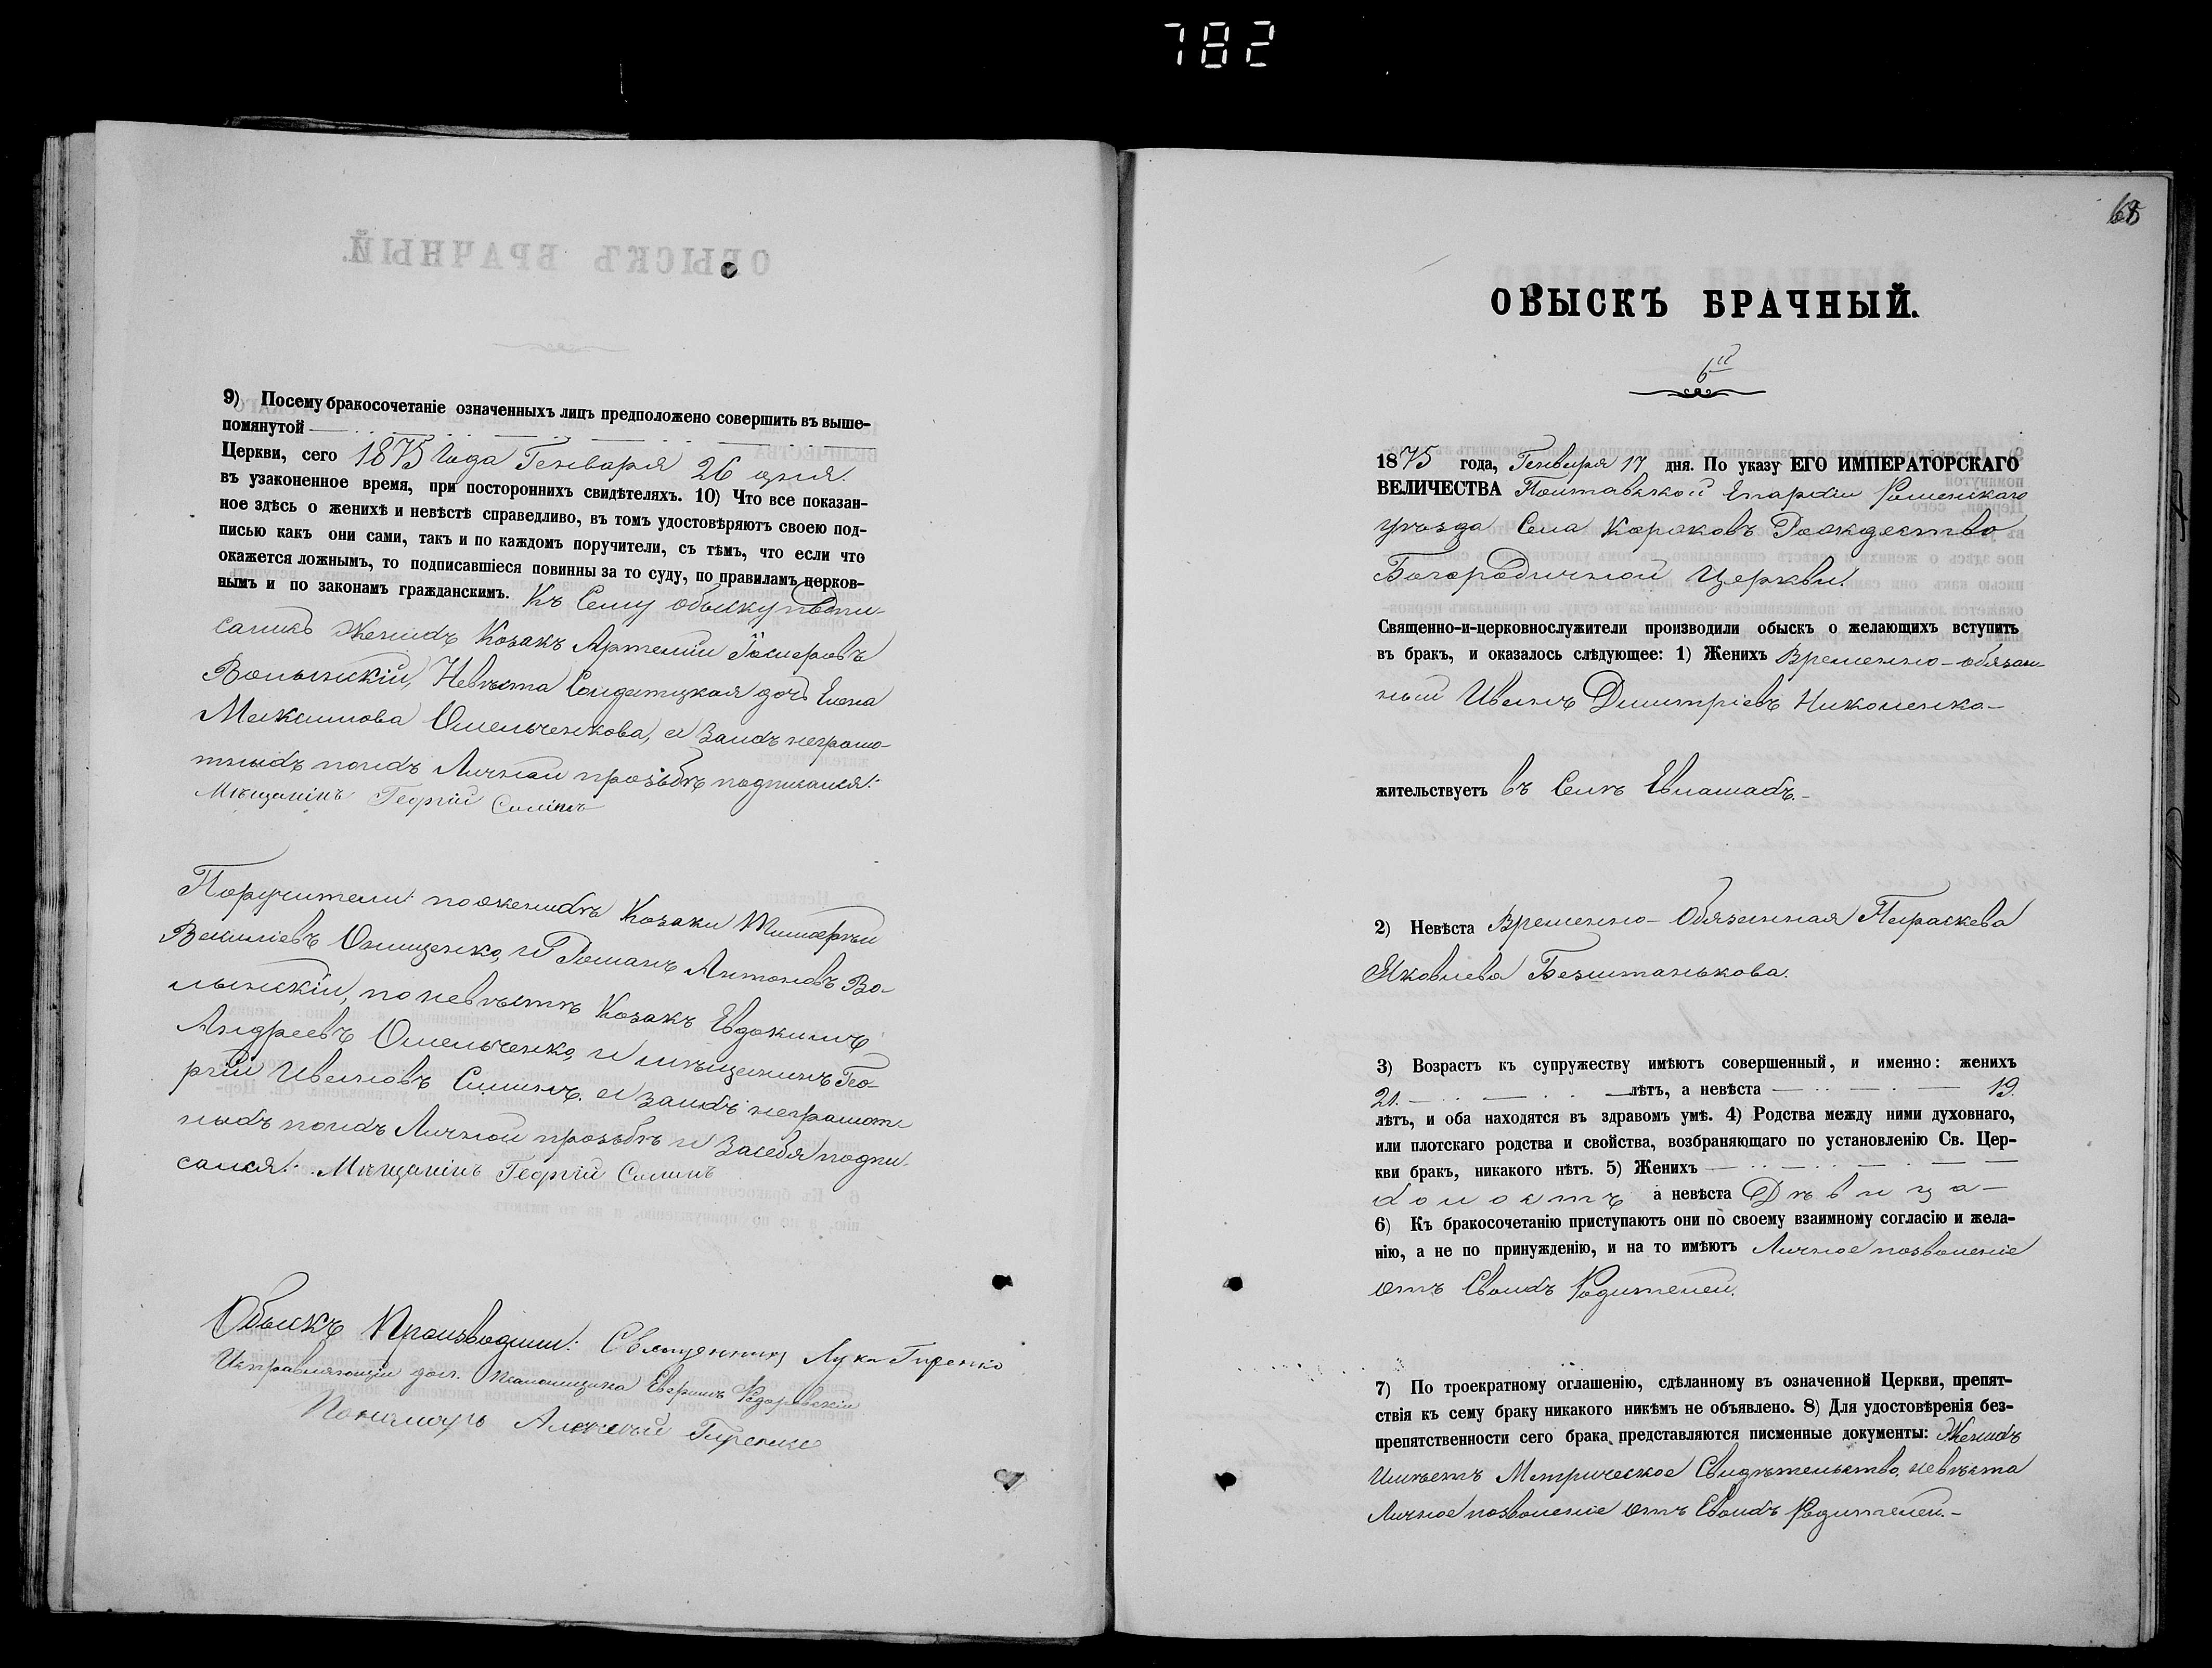 782
9) Посему бракосочетаніе означенныхъ лицъ предположено совершить въ выше-
помянутой
Церкви, сего 1875 Года Генваря 26 дня.
въ узаконенное время, при постороннихъ свидѣтеляхъ. 10) Что все показан-
ное здѣсь о женихѣ и невѣстѣ справедливо, въ томъ удостовѣряютъ своею под-
писью какъ они сами, такъ и по каждомъ поручители, съ тѣмъ, что если что
окажется ложнымъ, то подписавшіеся повинны за то суду, по правиламъ церков-
нымъ и по законамъ гражданскимъ. Къ Сему обыску подпи-
Женихъ Козакъ Артемій
Волынскій, Невѣста Солдатцкая дочь Елена
Максимова Омельченкова, а Заихъ неграмо-
тныхъ поихъ Личной прозьбѣ подписался:
Мѣщанинъ Георгій
Поручители: поженихѣ Козаки Тимофѣй
Василіевъ Онищенко, и Романъ Антоновъ Во-
лынскій, поневѣстѣ Козакъ Евдокимъ
Андреевъ Омельченко, и мѣщанинъ Гео-
ргій Ивановъ а заихъ неграмот
ныхъ поихъ Личной прозьбѣ и Засебя подпи-
сался: Мѣщанинъ Георгій
Обыскъ Производили: Священникъ Лука Гиренко
Исправляющій дол. Псаломщика
Пономарь Алексѣй Гиренко
ОБЫСКЪ БРАЧНЫЙ.
6й
1875 года, Генваря 17 дня. По указу ЕГО ИМПЕРАТОРСКАГО
ВЕЛИЧЕСТВА Полтавской Епархіи Роменскаго
уѣзда Села Коровковъ Рождество
Богородичной Церкви:
Священно-и-церковнослужители производили обыскъ о желающихъ вступить
въ бракъ, и оказалось слѣдующее: 1) Женихъ Временно-обязан-
ный Иванъ Димитріевъ Николенко-
жительствуетъ въ Селѣ Евлашахъ.-
2) Невѣста Временно-Обязанная Параскева
Яковлева Безштанькова.
3) Возрастъ къ супружеству имѣютъ совершенный, и именно: женихъ
21. лѣтъ, а невѣста 19.
лѣтъ, и оба находятся въ здравомъ умѣ. 4) Родства между ними духовнаго,
или плотскаго родства и свойства, возбраняющаго по установленію Св. Цер-
кви бракъ, никакого нѣтъ. 5) Женихъ
холостъ а невѣста Дѣвица-
6) Къ бракосочетанію приступаютъ они по своему взаимному согласію и жела-
нію, а не по принужденію, и на то имѣютъ Личное позволеніе
отъ Своихъ Родителей.
7) По троекратному оглашенію, сдѣланному въ означенной Церкви, препят-
ствія къ сему браку никакого никѣмъ не объявлено. 8) Для удостовѣренія без-
препятственности сего брака представляются писменные документы: Женихъ
Имѣетъ Метрическое Свидѣтельство, невѣста
Личное позволеніе отъ Своихъ Родителей.-